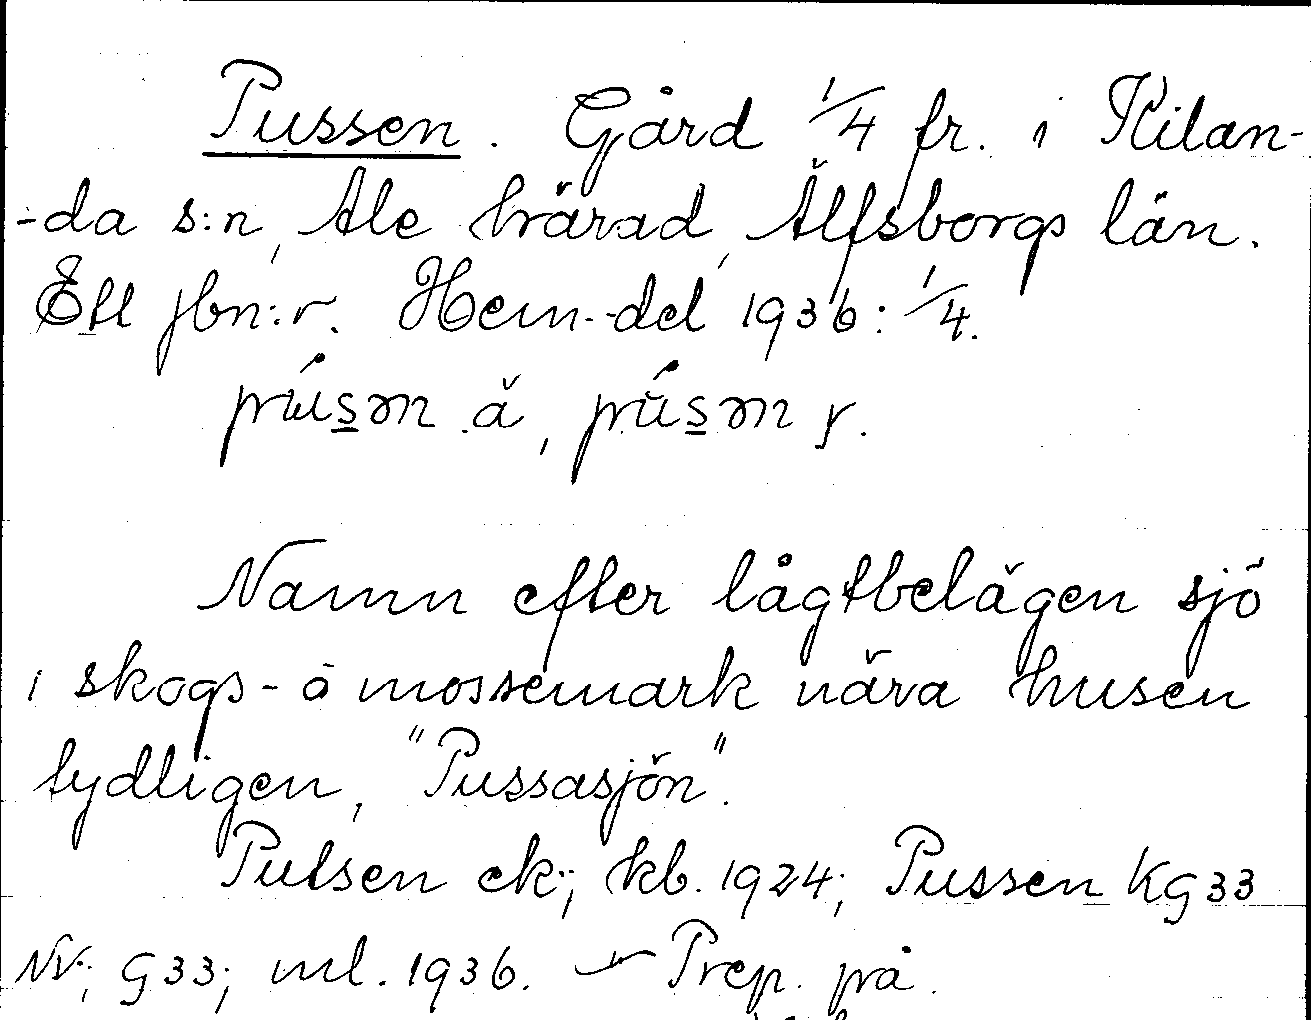 Pussen. Gård 1/4 fr. i Kilan-
-da s:n, Ale härad, Älfsborgs län.
Ett jbn:r. Hem.-del 1936: 1/4.
pǘsən ä, pǘsən y.
Namn efter lågtbelägen sjö
i skogs- å mossemark nära husen
tydligen, "Pussasjön".
Putsen ek; kb. 1924; Pussen KG33
NV; G33; ml. 1936. — Prep. på.